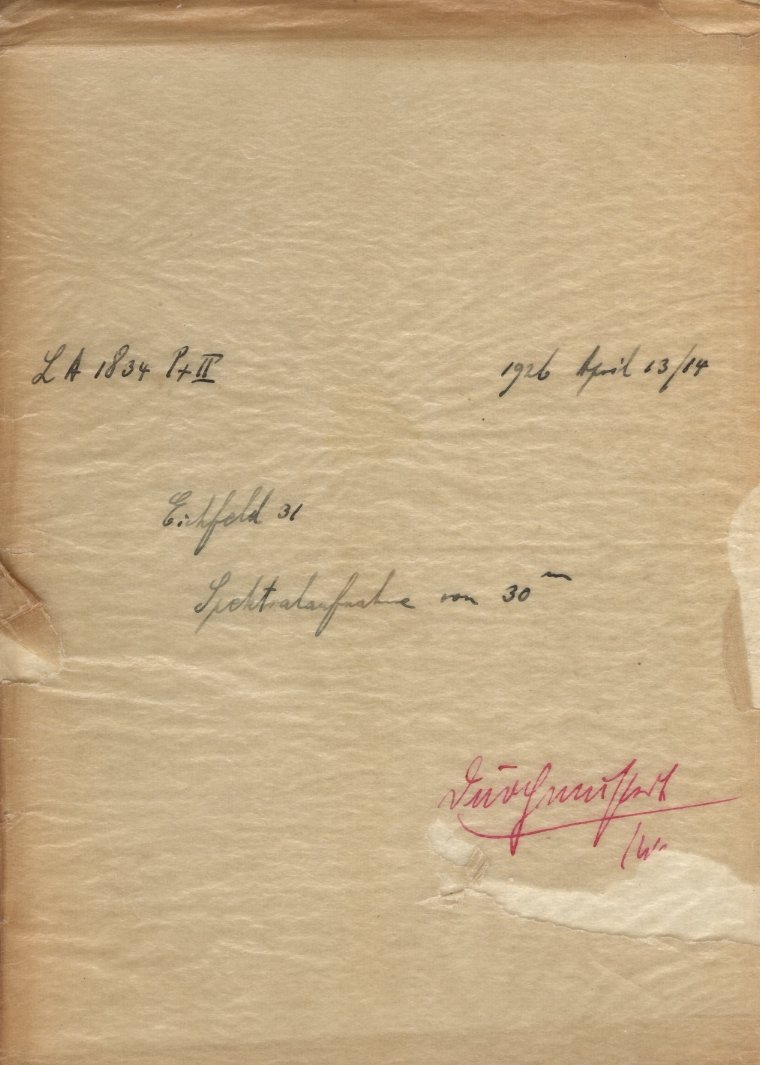 LA 1834 P+II 1926 April 13/14
Eichfeld 31
Spektralaufnahme von 30ᵐ
Durchmustert